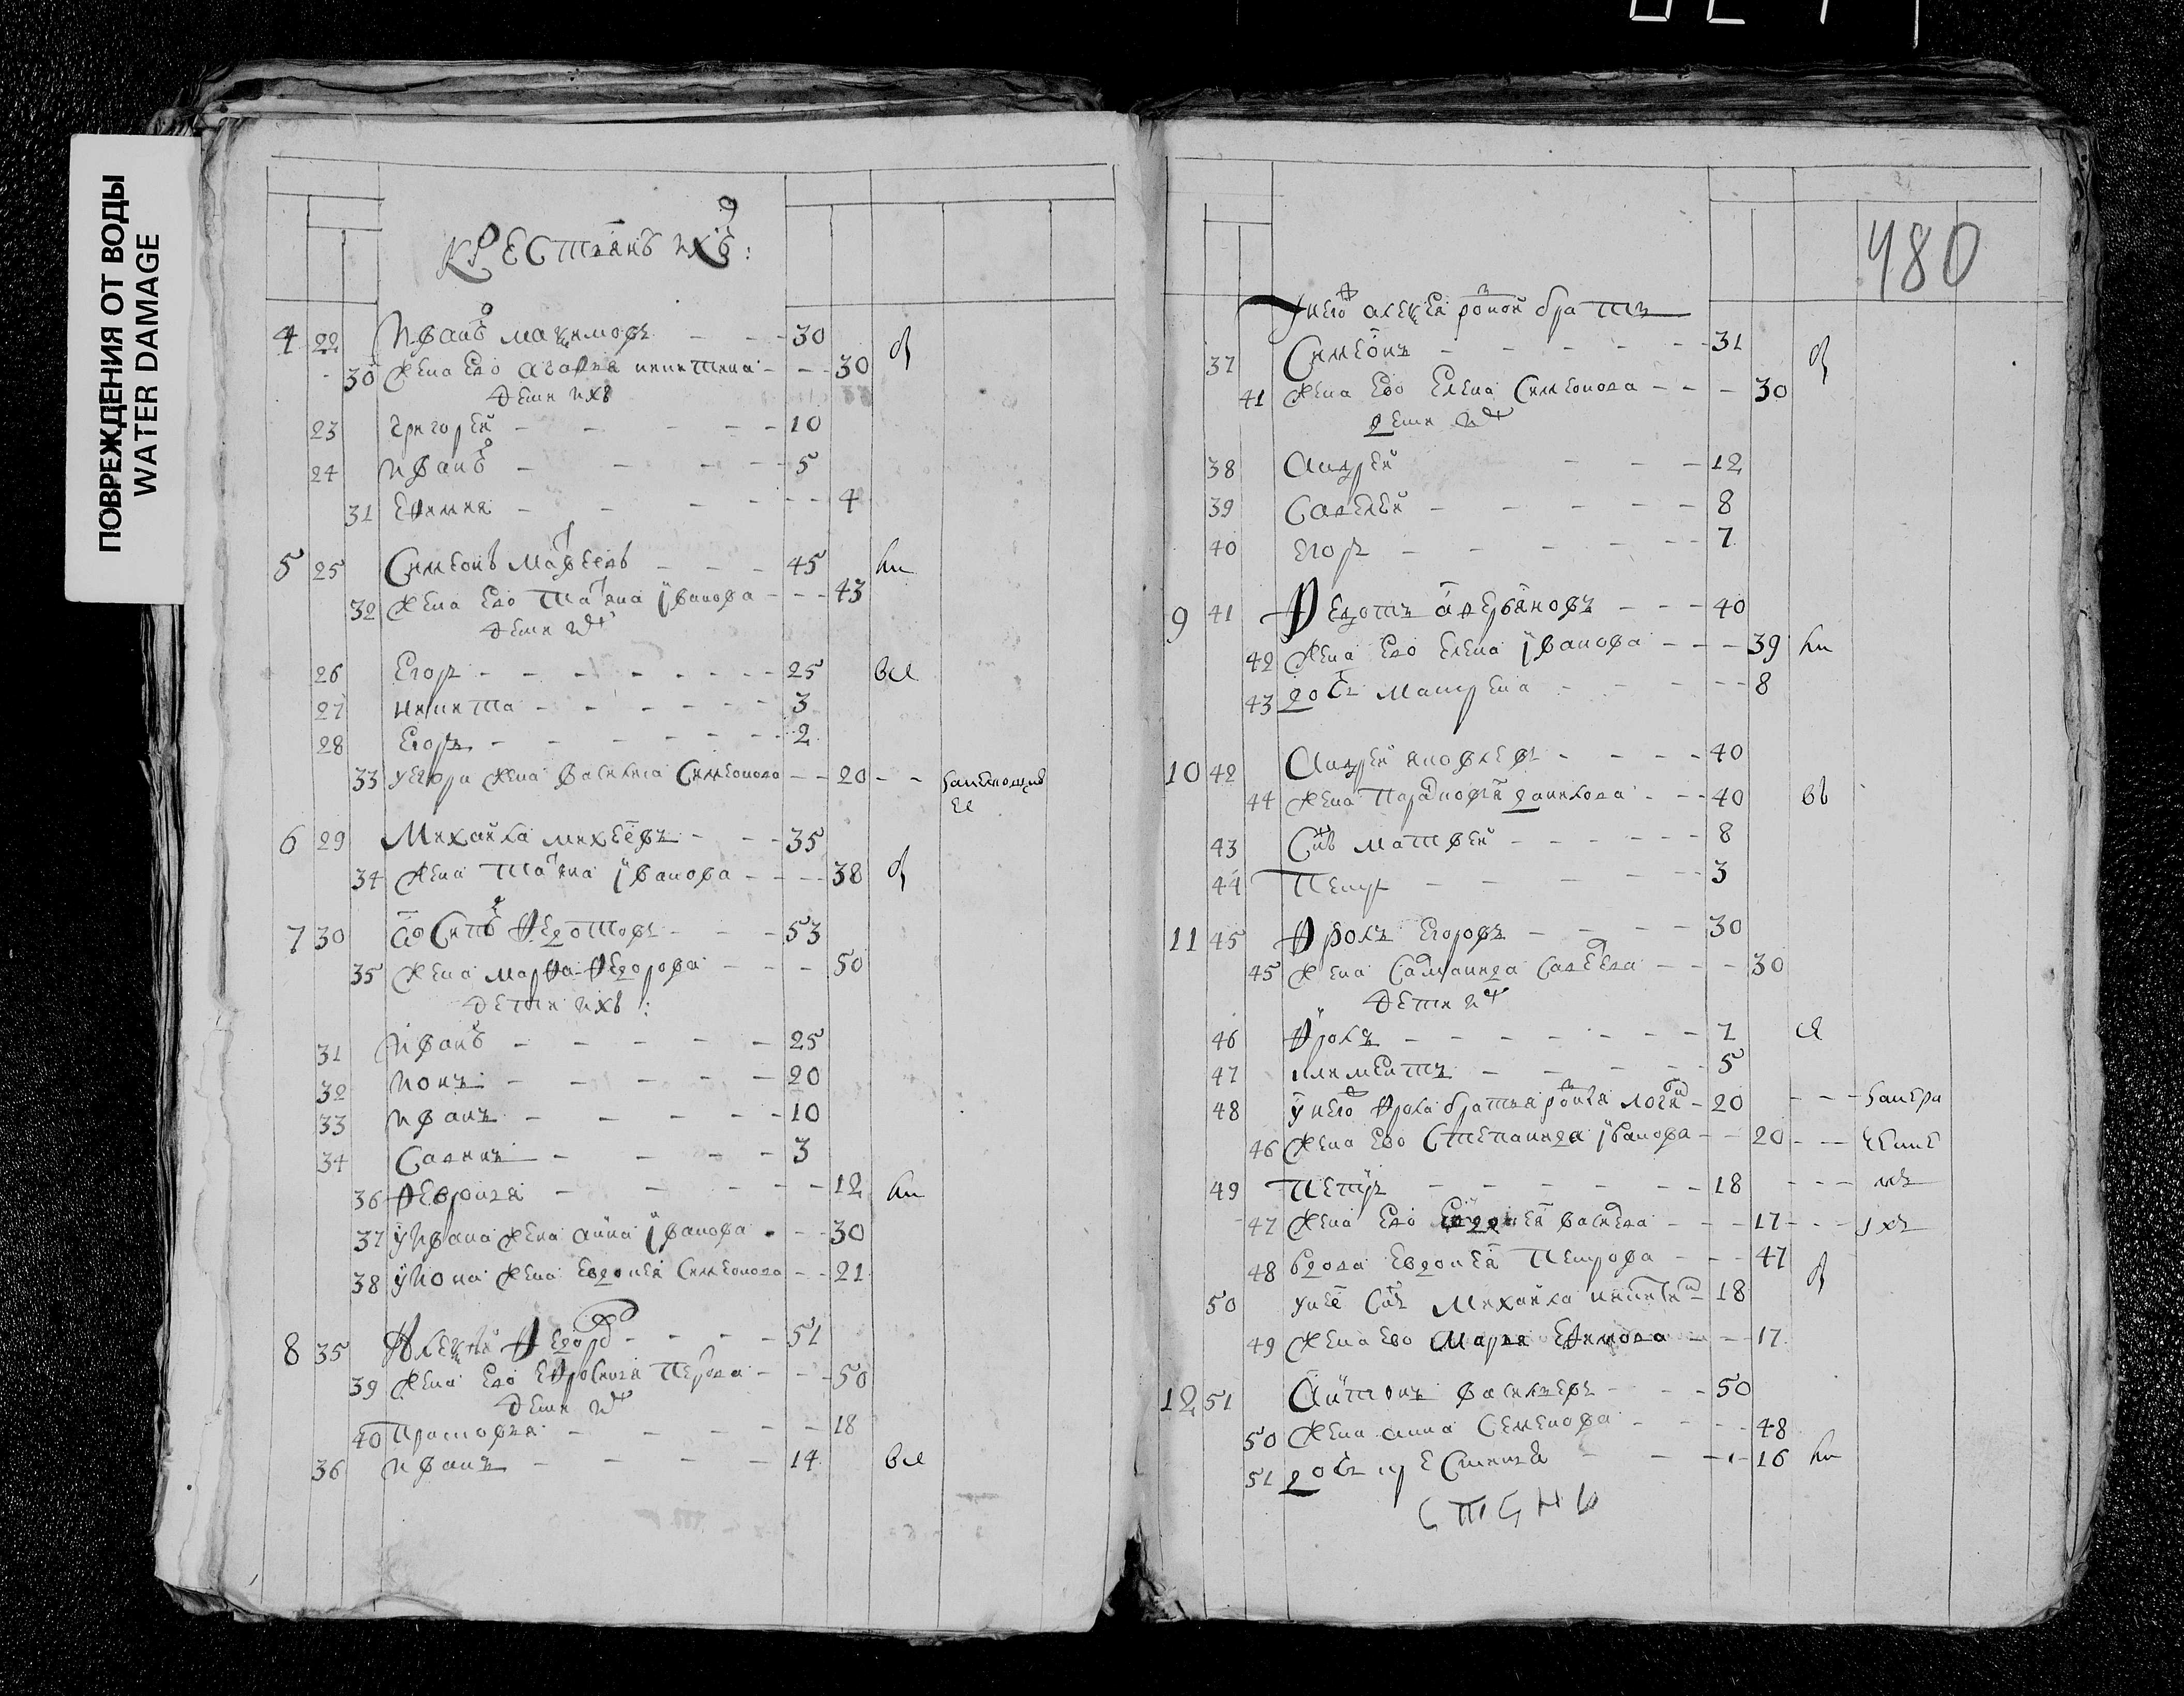 ПОВРЕЖДЕНИЯ ОТ ВОДЫ
WATER DAMAGE
480
крестьянъ ихъ:
4 22 Иванъ Маѯимовъ 30
30 жена ево Агафья Никитина 30
дети ихъ
23 Григорей 10
24 Иванъ 5
31 Ефимия 4
5 25 Симеонъ Матвеевъ 45
32 жена ево Татьяна Іванова 43
дети их
26 Егоръ 25
27 Никита 3
28 Егоръ 2
33 у Егора жена Василиса Симеонова 20
6 29 Михайла Михеевъ 35
34 жена Татьяна Іванова 38
7 30 Федотовъ 53
35 жена Марфа Федорова 50
дети ихъ:
31 Иванъ 25
32 Ионъ 20
33 Иванъ 10
34 Савинъ 3
36 Феврония 12
37 у Ивана жена Анна Іванова 30
38 у Иона жена Евдокея Симеонова 21
8 35 Алеѯей Федоро 51
39 жена ево Ефросинья Петрова 50
дети их
40 Прасковья 18
36 Иванъ 14
у него Алеѯея родной братъ
37 Симеонъ 31
41 жена ево Елена Симеонова 30
дети их
38 Андрей 12
39 Савелей 8
40 Егоръ 7
9 41 Федотъ Аверьяновъ 40
42 жена ево Елена Іванова 39
43 дочь Матрена 8
10 42 Андрей Яковлевъ 40
44 жена Парасковея Данилова 40
43 сынъ Матвей 8
44 Петръ 3
11 45 Фролъ Егоровъ 30
45 жена Савельева 30
дети их
46 Фролъ 7
47 Климентъ 5
48 у него Фрола братья родныя 20
46 жена ево Степанида Іванова 20
49 Петръ 18
47 жена ево Васильева 17
48 вдова Евдокея Петрова 47
50 у нее сынъ Михайла Никитинъ 18
49 жена ево Марья Ефимова 17
12 51 Антонъ Васильевъ 50
50 жена Анна Семенова 48
51 дочь 16